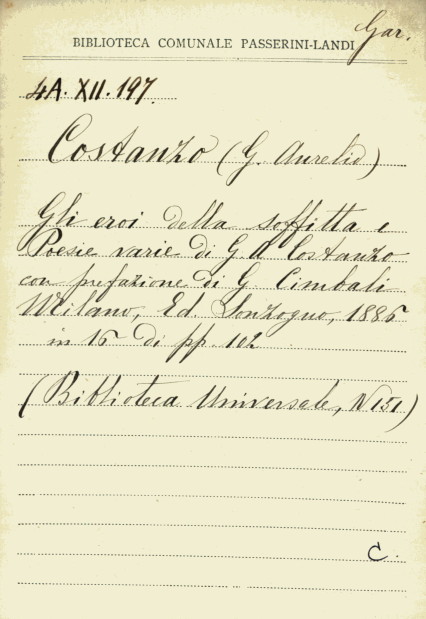 Gar.
BIBLIOTECA COMUNALE PASSERINI-LANDI
4A. XII. 197.
Costanzo (G. Aurelio)
Gli eroi della soffitta e
Poesie varie di G A Costanzo
con prefazione di G. Cimbali
Milano, Ed. Sonzogno, 1886
in 16 di pp. 102
(Biblioteca Universale, N 151)
C.